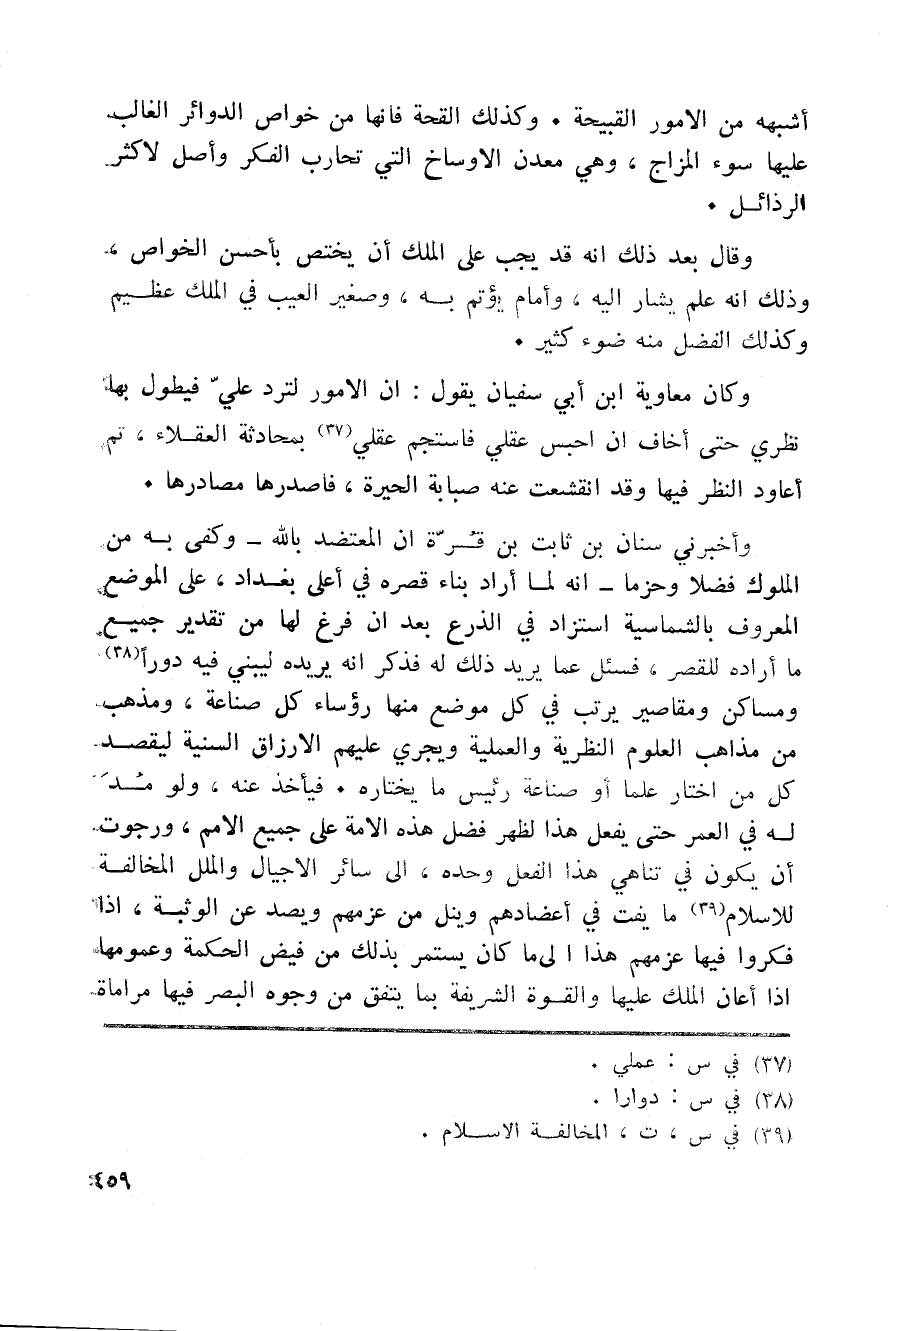 أشبهه من الامور القبيحة . وكذلك القحة فانها من خواص الدوائر الغالب
عليها سوء المزاج ، وهي معدن الاوساخ التي تحارب الفكر وأصل لاكثر
الرذائــل .
وقال بعد ذلك انه قد يجب على الملك أن يختص بأحسن الخواص ،
وذلك انه علم يشار اليه ، وأمام يؤتم بــه ، وصغير العيب في الملك عظــيم
وكذلك الفضل منه ضوء كثير .
وكان معاوية ابن أبي سفيان يقول : ان الامور لترد عليّ فيطول بها
نظري حتى أخاف ان احبس عقلي فاستجم عقلي(٣٧) بمحادثة العقــلاء ، ثم
أعاود النظر فيها وقد انقشعت عنه صبابة الحيرة ، فاصدرها مصادرها .
وأخبرني سنان بن ثابت بن قــرّة ان المعتضد بالله ــ وكفى بــه من
الملوك فضلا وحزما ــ انه لما أراد بناء قصره في أعلى بغــداد ، على الموضع
المعروف بالشماسية استزاد في الذرع بعد ان فرغ لها من تقدير جميــع
ما أراده للقصر ، فسئل عما يريد ذلك له فذكر انه يريده ليبني فيه دوراً(٣٨)
ومساكن ومقاصير يرتب في كل موضع منها رؤساء كل صناعة ، ومذهب
من مذاهب العلوم النظرية والعملية ويجري عليهم الارزاق السنية ليقصــد
كل من اختار علما أو صناعة رئيس ما يختاره . فيأخذ عنه ، ولو مــُدَّ
لــه في العمر حتى يفعل هذا لظهر فضل هذه الامة على جميع الامم ، ورجوت
أن يكون في تناهي هذا الفعل وحده ، الى سائر الاجيال والملل المخالفــة
للاسلام(٣٩) ما يفت في أعضادهم وينل من عزمهم ويصد عن الوثبــة ، اذا
فكروا فيها عزمهم هذا ا لىما كان يستمر بذلك من فيض الحكمة وعمومها
اذا أعان الملك عليها والقــوة الشريفة بما يتفق من وجوه البصر فيها مراماة
(٣٧) في س : عملي .
(٣٨) في س : دوارا .
(٣٩) في س ، ت ، المخالفــة الاســلام .
٤٥٩